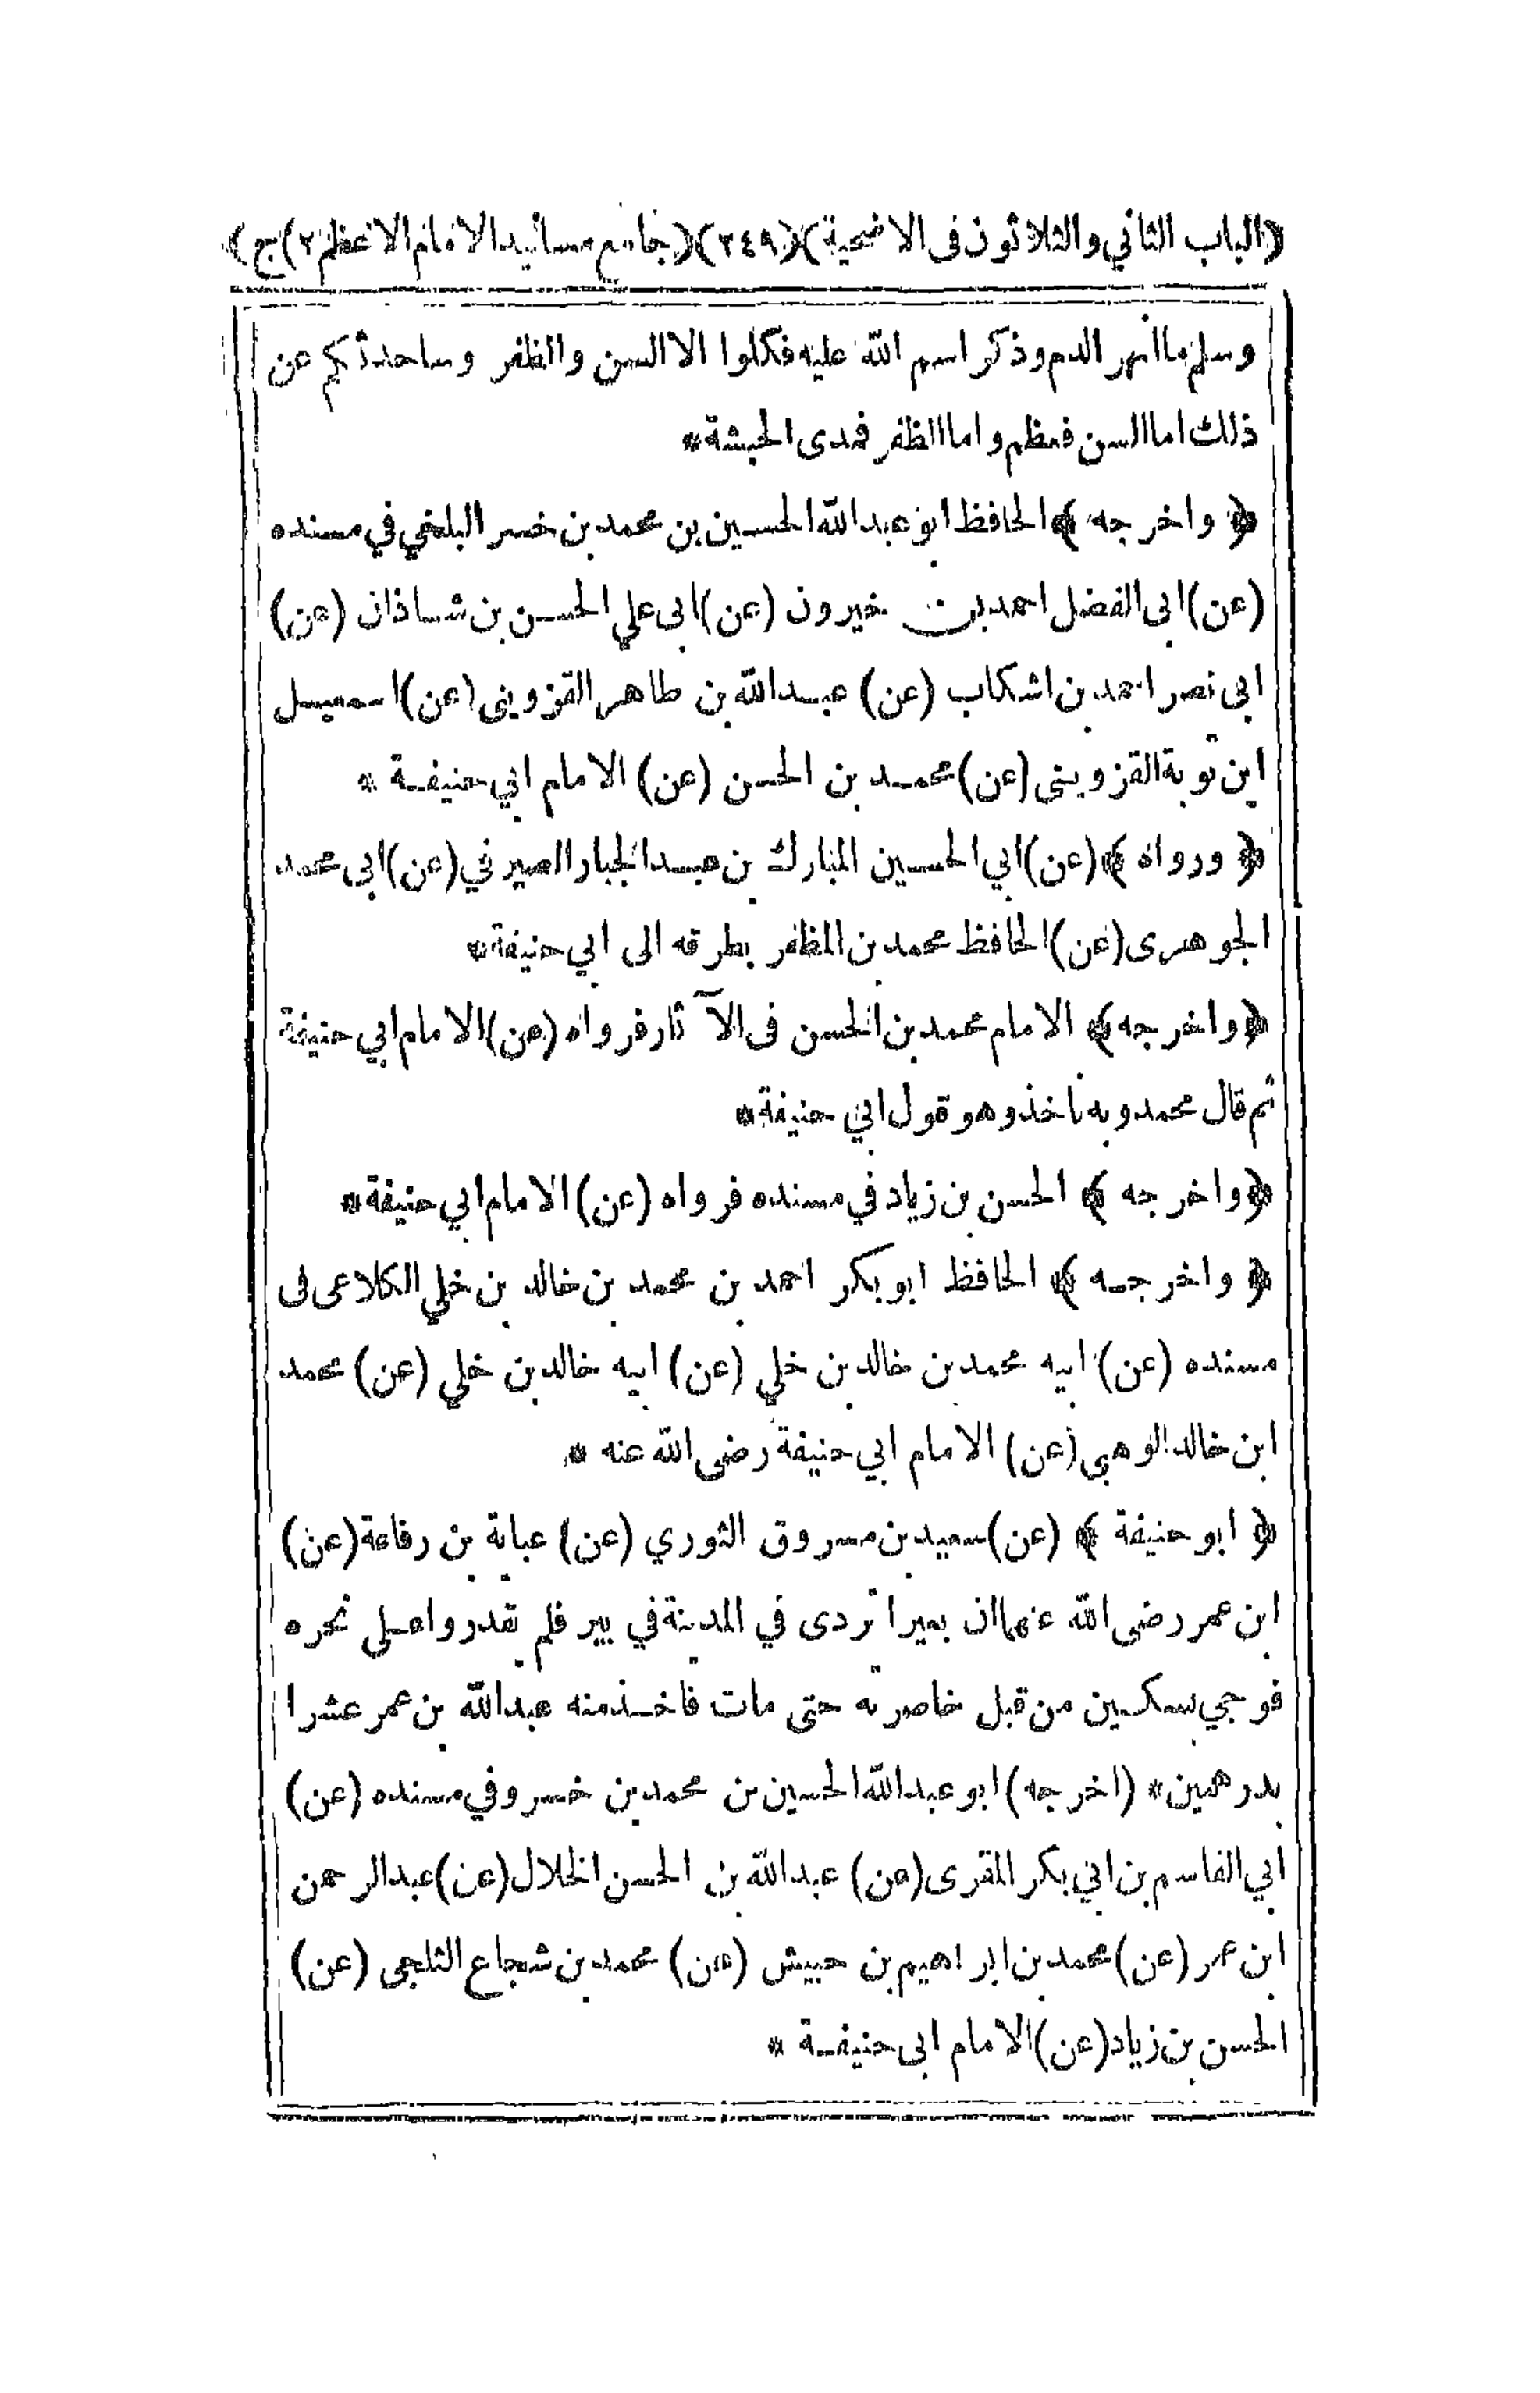 (الباب الثاني والثلاثون في الاضحية)(٢٤٩)(جامع مسانيد الامام الاعظم ٢)ج)
وسلم ما انهر الدم وذكر اسم الله عليه فكلوا الا السن والظفر وساحدثكم عن
ذلك اما السن فعظم واما الظفر فمدى الحبشة*
﴿ واخرجه ﴾ الحافظ ابو عبد الله الحسين بن محمد بن خسر البلخي في مسنده
(عن) ابى الفضل احمد بن خيرون (عن) ابى علي الحسن بن شاذان (عن)
ابى نصر احمد بن اشكاب (عن) عبد الله بن طاهر القزوينى (عن) اسمعيل
ابن توبة القزوينى (عن) محمد بن الحسن (عن) الامام ابي حنيفة *
﴿ ورواه ﴾ (عن) ابي الحسين المبارك بن عبد الجبار الصيرفي (عن) ابى محمد
الجوهرى (عن) الحافظ محمد بن المظفر بطرقه الى ابي حنيفة*
﴿واخرجه﴾ الامام محمد بن الحسن فى الآثار فرواه (عن) الامام ابي حنيفة
ثم قال محمد وبه ناخذ وهو قول ابي حنيفة*
﴿واخرجه ﴾ الحسن بن زياد في مسنده فرواه (عن) الامام ابي حنيفة*
﴿ واخرجه ﴾ الحافظ ابو بكر احمد بن محمد بن خالد بن خلي الكلاعى فى
مسنده (عن) ابيه محمد بن خالد بن خلي (عن) ابيه خالد بن خلي (عن) محمد
ابن خالد الوهبي (عن) الامام ابي حنيفة رضى الله عنه *
﴿ ابو حنيفة ﴾ (عن) سعيد بن مسروق الثوري (عن) عباية بن رفاعة (عن)
ابن عمر رضى الله عنهما ان بعيرا تردى في المدينة في بير فلم يقدروا على نحره
فوجي بسكين من قبل خاصرته حتى مات فاخذ منه عبد الله بن عمر عشرا
بدرهمين* (اخرجه) ابو عبد الله الحسين بن محمد بن خسرو في مسنده (عن)
ابي القاسم بن ابي بكر المقرى (عن) عبد الله بن الحسن الخلال (عن) عبد الرحمن
ابن عمر (عن) محمد بن ابراهيم بن حبيش (عن) محمد بن شجاع الثلجى (عن)
الحسن بن زياد (عن) الامام ابى حنيفة *